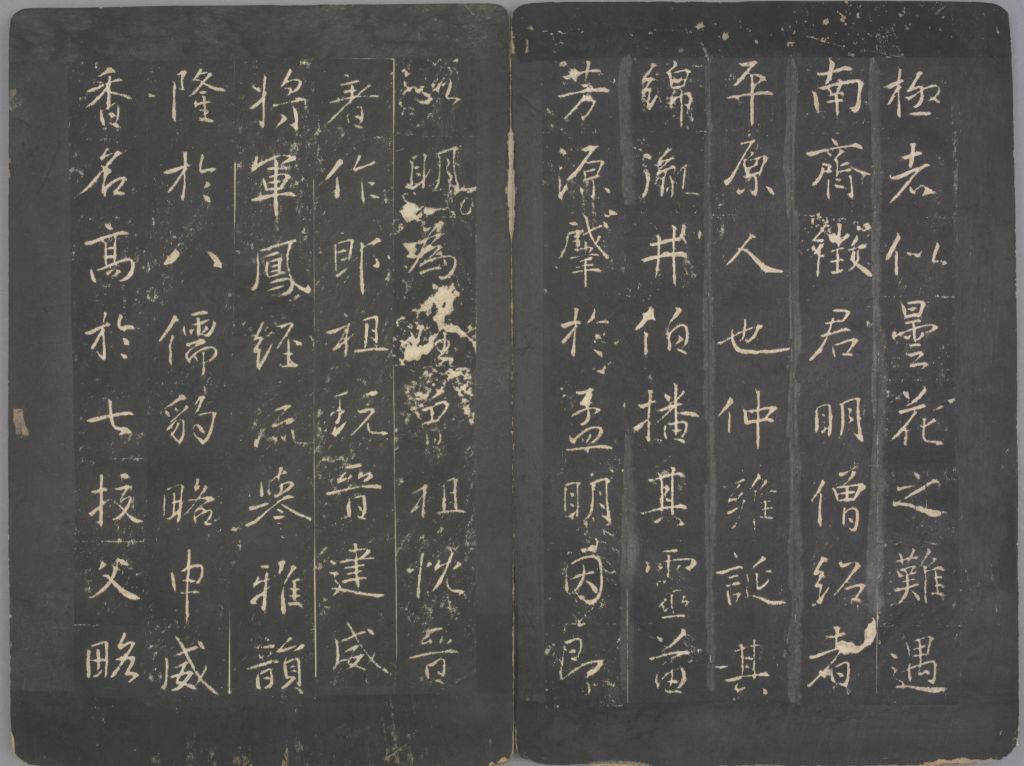 極者似曇花之難遇
南齊徵君明僧紹者
平原人也仲雍誕其
錦胤井伯播其靈苗
芳源肇於孟明因即
明為曾祖忱晉
著作郎祖玩晉建威
將軍鳳經流譽雅韻
隆於八儒豹略申威
香名高於七校父略